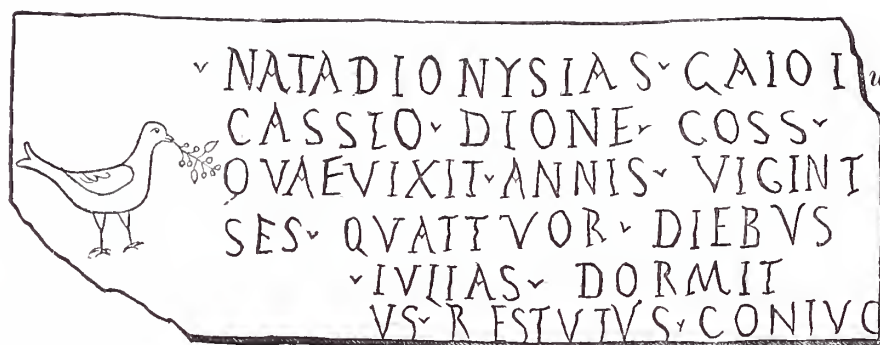 NATADIONYSIAS GAIOI
CASSIO DIONE COSS
QVAEVIXIT ANNIS VIGINT
SES QVATTVOR DIEBVS
IVLIAS DORMIT
VS RESTVTVS CONIVC